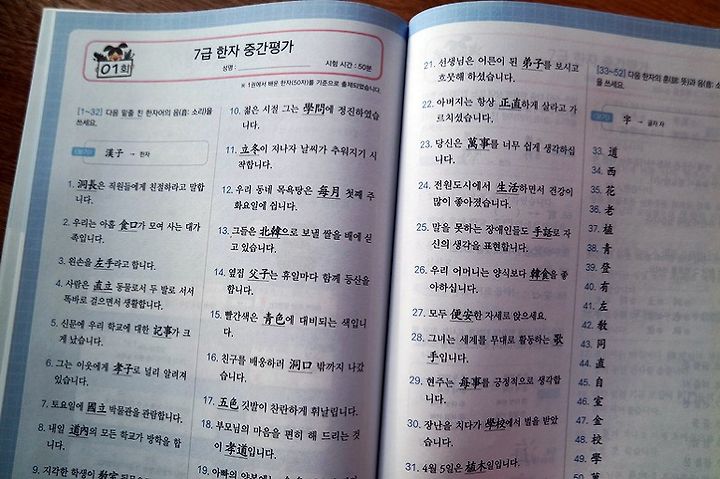 01회
7급 한자 중간평가
성명 :
시험 시간 : 50분
※ 1권에서 배운 한자(50자)를 기준으로 출제되었습니다.
[1~32] 다음 밑줄 친 한자어의 음(音: 소리)을
쓰세요.
<보기> 漢子 → 한자
1. 洞長은 직원들에게 친절하라고 말합
니다.
2. 우리는 아홉 食口가 모여 사는 대가
족입니다.
3. 왼손을 左手라고 합니다.
4. 사람은 直立 동물로서 두 발로 서서
똑바로 걸으면서 생활합니다.
5. 신문에 우리 학교에 대한 記事가 크
게 났습니다.
6. 그는 이웃에게 孝子로 널리 알려져
있습니다.
7. 토요일에 國立 박물관을 관람합니다.
8. 내일 道內의 모든 학교가 방학을 합
니다.
9. 지각한 학생이 敎室
10. 젊은 시절 그는 學問에 정진하였습
니다.
11. 立冬이 지나자 날씨가 추워지기 시
작합니다.
12. 우리 동네 목욕탕은 每月 첫째 주
화요일에 쉽니다.
13. 그들은 北韓으로 보낼 쌀을 배에 싣
고 있습니다.
14. 옆집 父子는 휴일마다 함께 등산을
합니다.
15. 빨간색은 靑色에 대비되는 색입니
다.
16. 친구를 배웅하러 洞口 밖까지 나갔
습니다.
17. 五色 깃발이 찬란하게 휘날립니다.
18. 부모님의 마음을 편히 해 드리는 것
이 孝道입니다.
19. 아빠의 양복에는
21. 선생님은 어른이 된 弟子를 보시고
흐뭇해 하셨습니다.
22. 아버지는 항상 正直하게 살라고 가
르치셨습니다.
23. 당신은 萬事를 너무 쉽게 생각하십
니다.
24. 전원도시에서 生活하면서 건강이
많이 좋아졌습니다.
25. 말을 못하는 장애인들도 手話로 자
신의 생각을 표현합니다.
26. 우리 어머니는 양식보다 韓食을 좋
아하십니다.
27. 모두 便安한 자세로 앉으세요.
28. 그녀는 세계를 무대로 활동하는 歌
手입니다.
29. 현주는 每事를 긍정적으로 생각합
니다.
30. 장난을 치다가 學校에서 벌을 받았
습니다.
31. 4월 5일은 植木일입니다.
[33~52] 다음 한자의 훈(訓: 뜻)과 음(音: 소리)
을 쓰세요.
<보기> 字 → 글자 자
33. 道
34. 西
35. 花
36. 老
37. 植
38. 靑
39. 登
40. 有
41. 左
42. 敎
43. 同
44. 直
45. 自
46. 室
47. 金
48. 校
49. 學
50. 萬